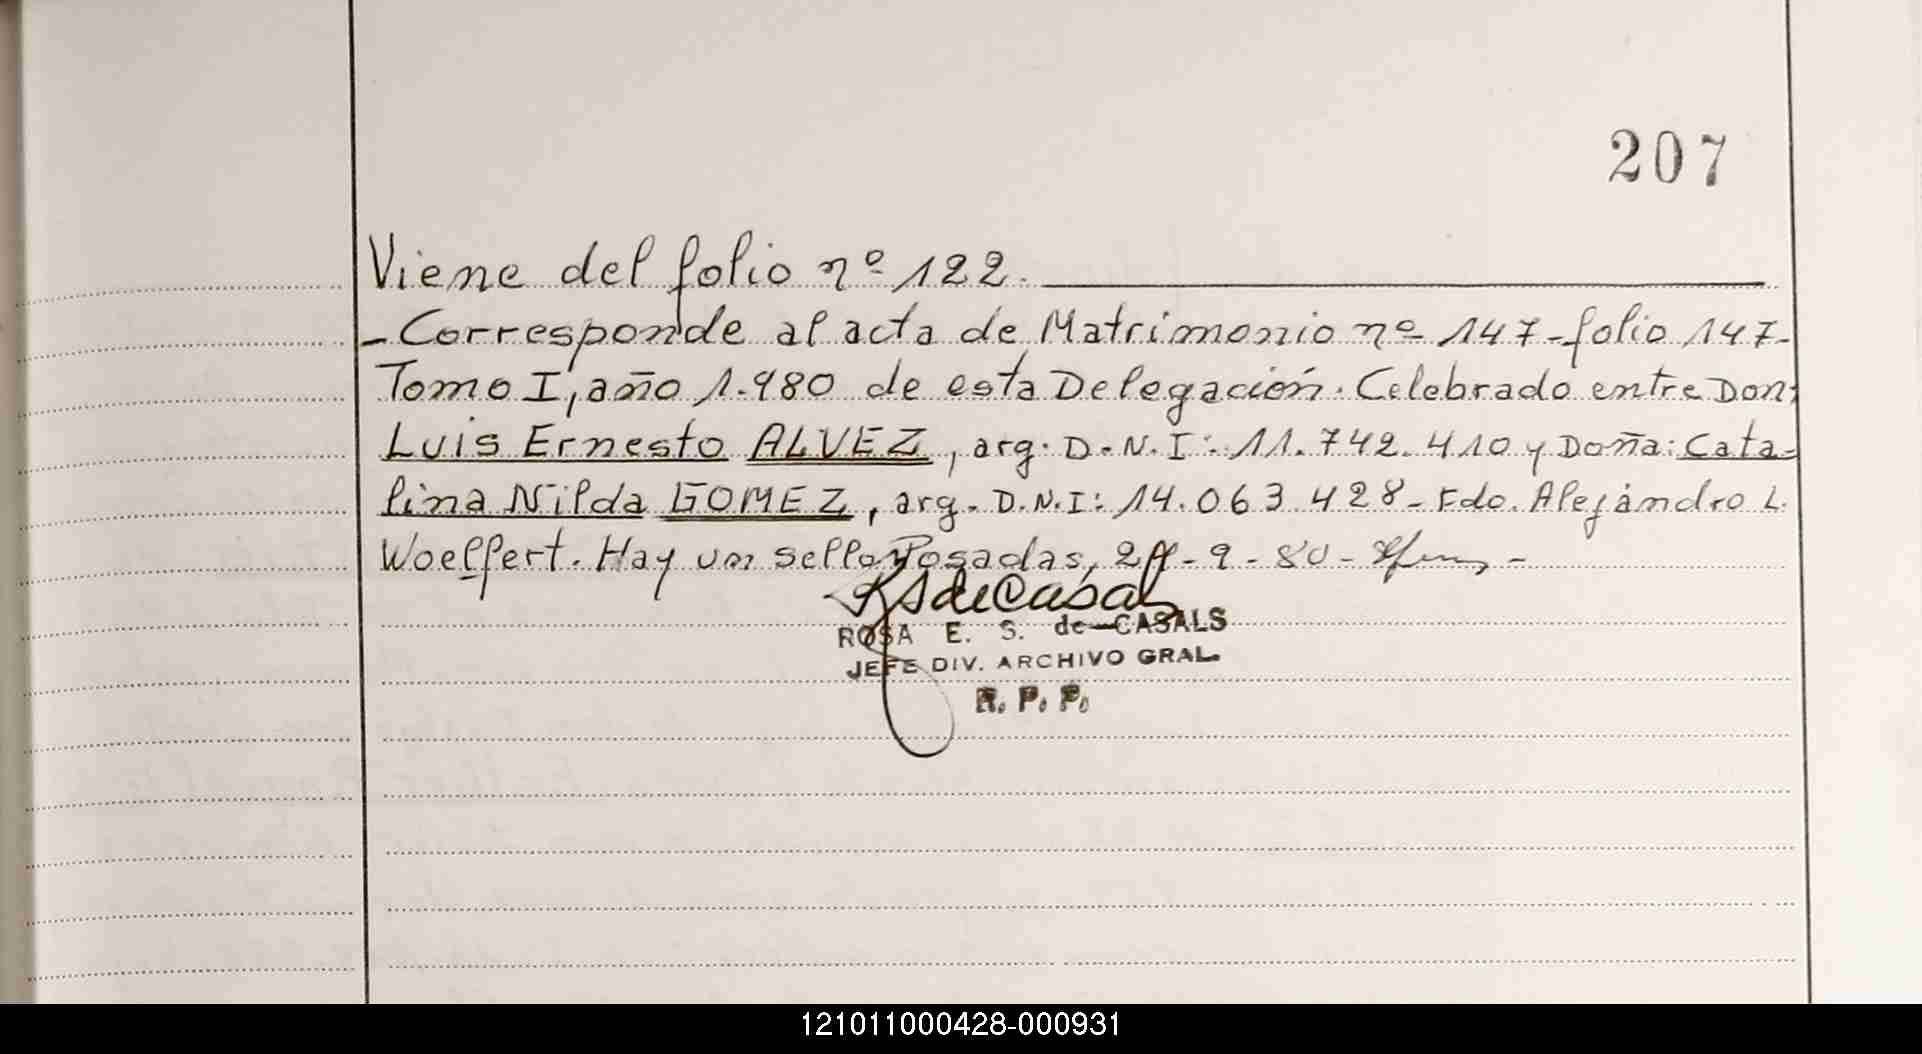 207
Viene del folio nº 122.
- Corresponde al acta de Matrimonio nº 147 - folio 147 -
Tomo I, año 1.980 de esta Delegación. Celebrado entre Don:
Luis Ernesto ALVEZ, arg. D.N.I: 11.742.410 y Doña: Cata-
lina Nilda GOMEZ, arg. D.N.I: 14.063.428 - Fdo. Alejandro L.
Woelfert. Hay un sello Posadas, - 9 - 80 -
ROSA E. S. de CASALS
JEFE DIV. ARCHIVO GRAL.
R. P. P.
121011000428-000931